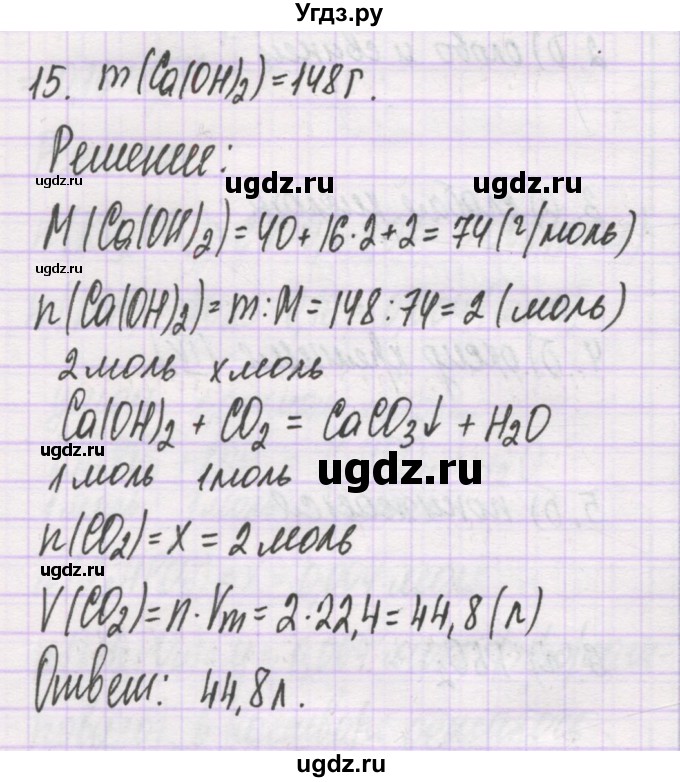 Угдз.ру
15. m(Ca(OH)₂)=148г.
Решение:
ugdz.ru
ugdz.ru ugdz.ru
M(Ca(OH)₂)=40+16·2+2=74(г/моль)
ugdz.ru
n(Ca(OH)₂)=m:M=148:74=2(моль)
2моль xмоль
Ca(OH)₂ + CO₂ = CaCO₃↓ + H₂O
ugdz.ru
1моль 1моль
ugdz.ru
n(CO₂)=x=2моль
ugdz.ru
V(CO₂)=n·Vm=2·22,4=44,8(л)
Ответ: 44,8л.
ugdz.ru
ugdz.ru ugdz.ru